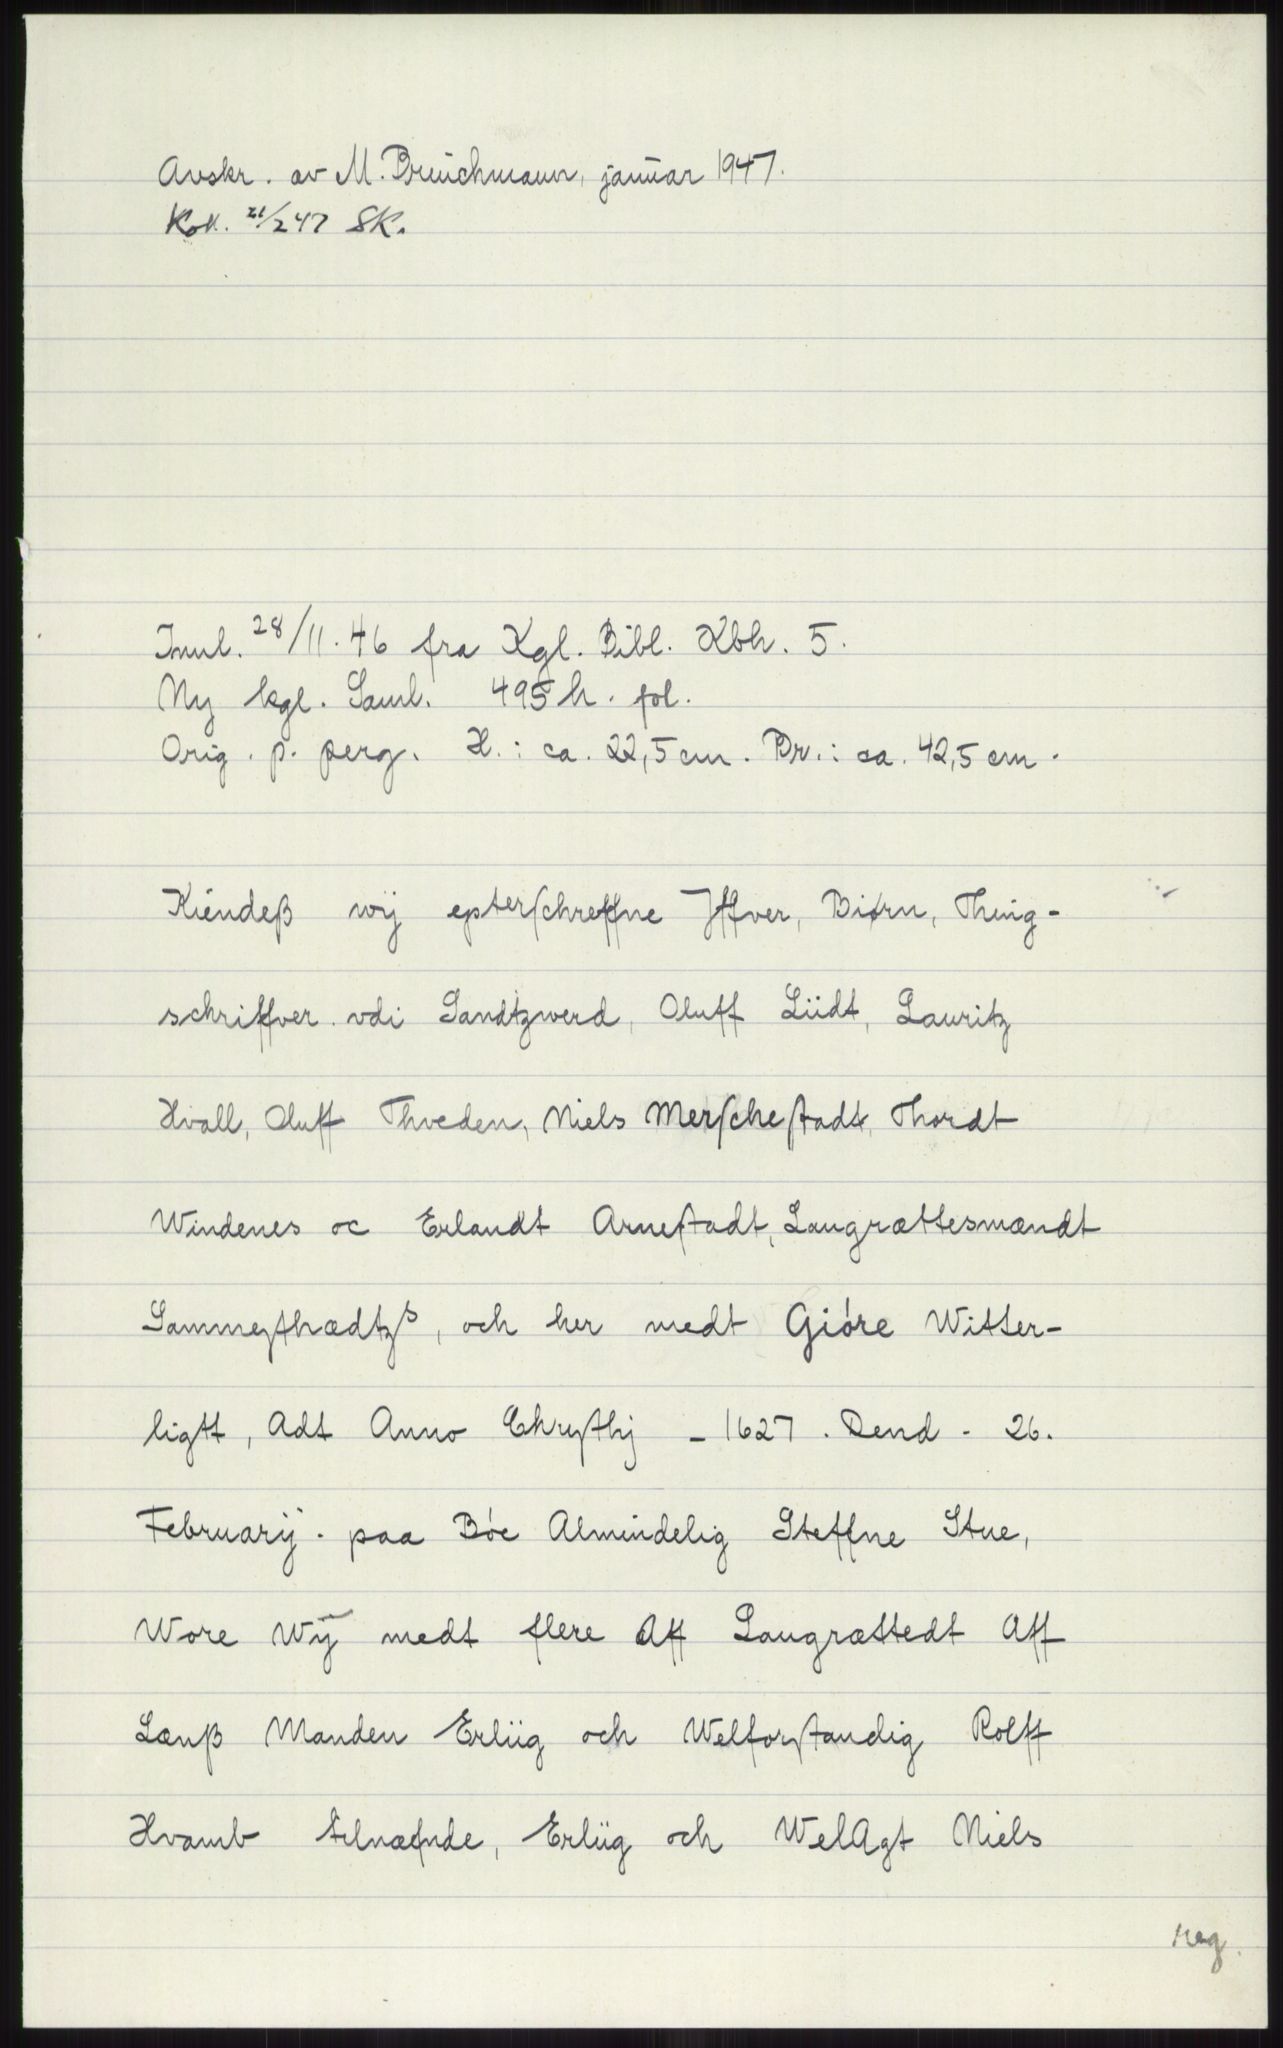 Avskr. av M. Bruichmann, januar 1947.
Koll. 21/2 47 SK.
Innl. 28/11.46 fra Kgl. Bibl. Kbh. 5.
Ny kgl. Saml. 495 h. fol.
Orig. p. perg. H.: ca. 22,5 cm. Br.: ca. 42,5 cm.
Kiendeß wij epterschreffne Jffver, Biørn, Thing-
schriffver vdi Sandtzwerd, Oluff Liidt, Lauritz
Hvall, Oluff Thveden, Niels Merschestadt, Thordt
Windenes oc Erlandt Arnestadt, Laugrættesmændt
Sammesthædtzs, och her medt Gióre Witter-
ligtt, Adt Anno Chrysthj - 1627. Dend - 26.
Februarij. paa Bóe Almindelig Steffne Stue,
Wore Wij medt flere Aff Laugrættedt Aff
Lænß Manden Erliig och Welforstandig Rolff
Hvamb tilnæfnde, Erliig och WelAgt Niels
neg.